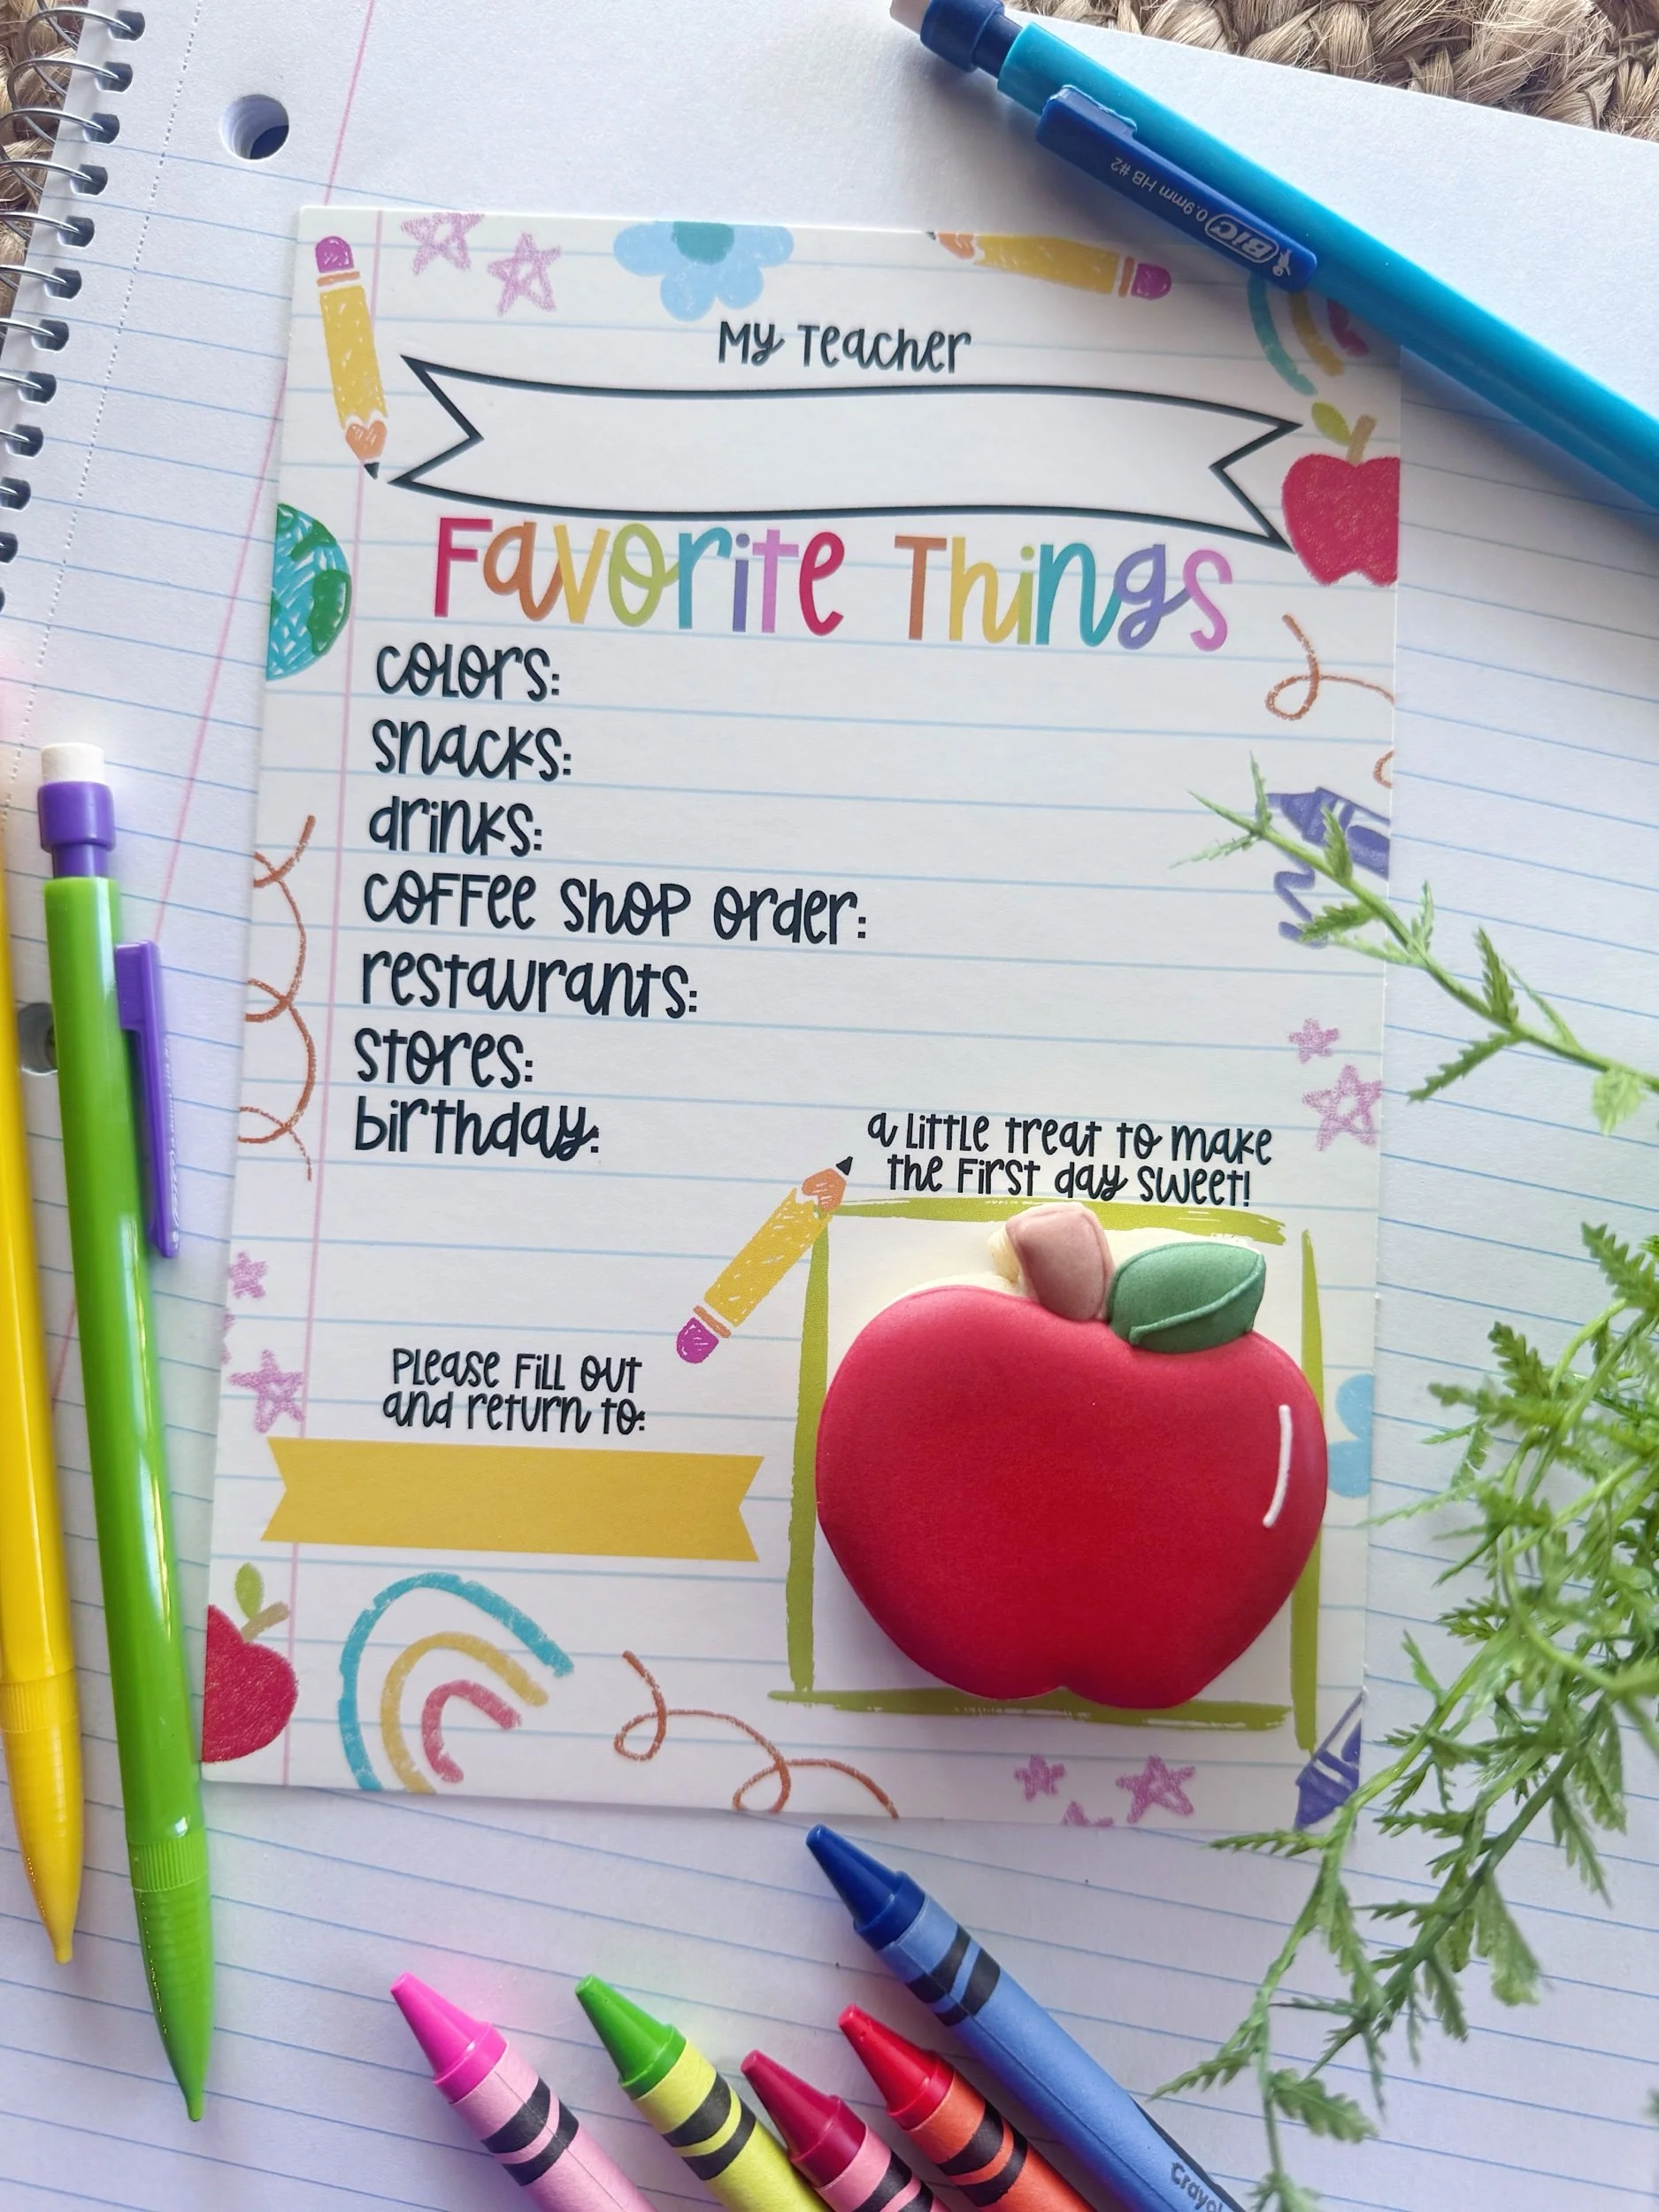 BIC 0.9mm HB #2
My Teacher
Favorite Things
colors:
snacks:
drinks:
coffee shop order:
restaurants:
stores:
birthday:
a little treat to make
the first day sweet!
Please fill out
and return to: